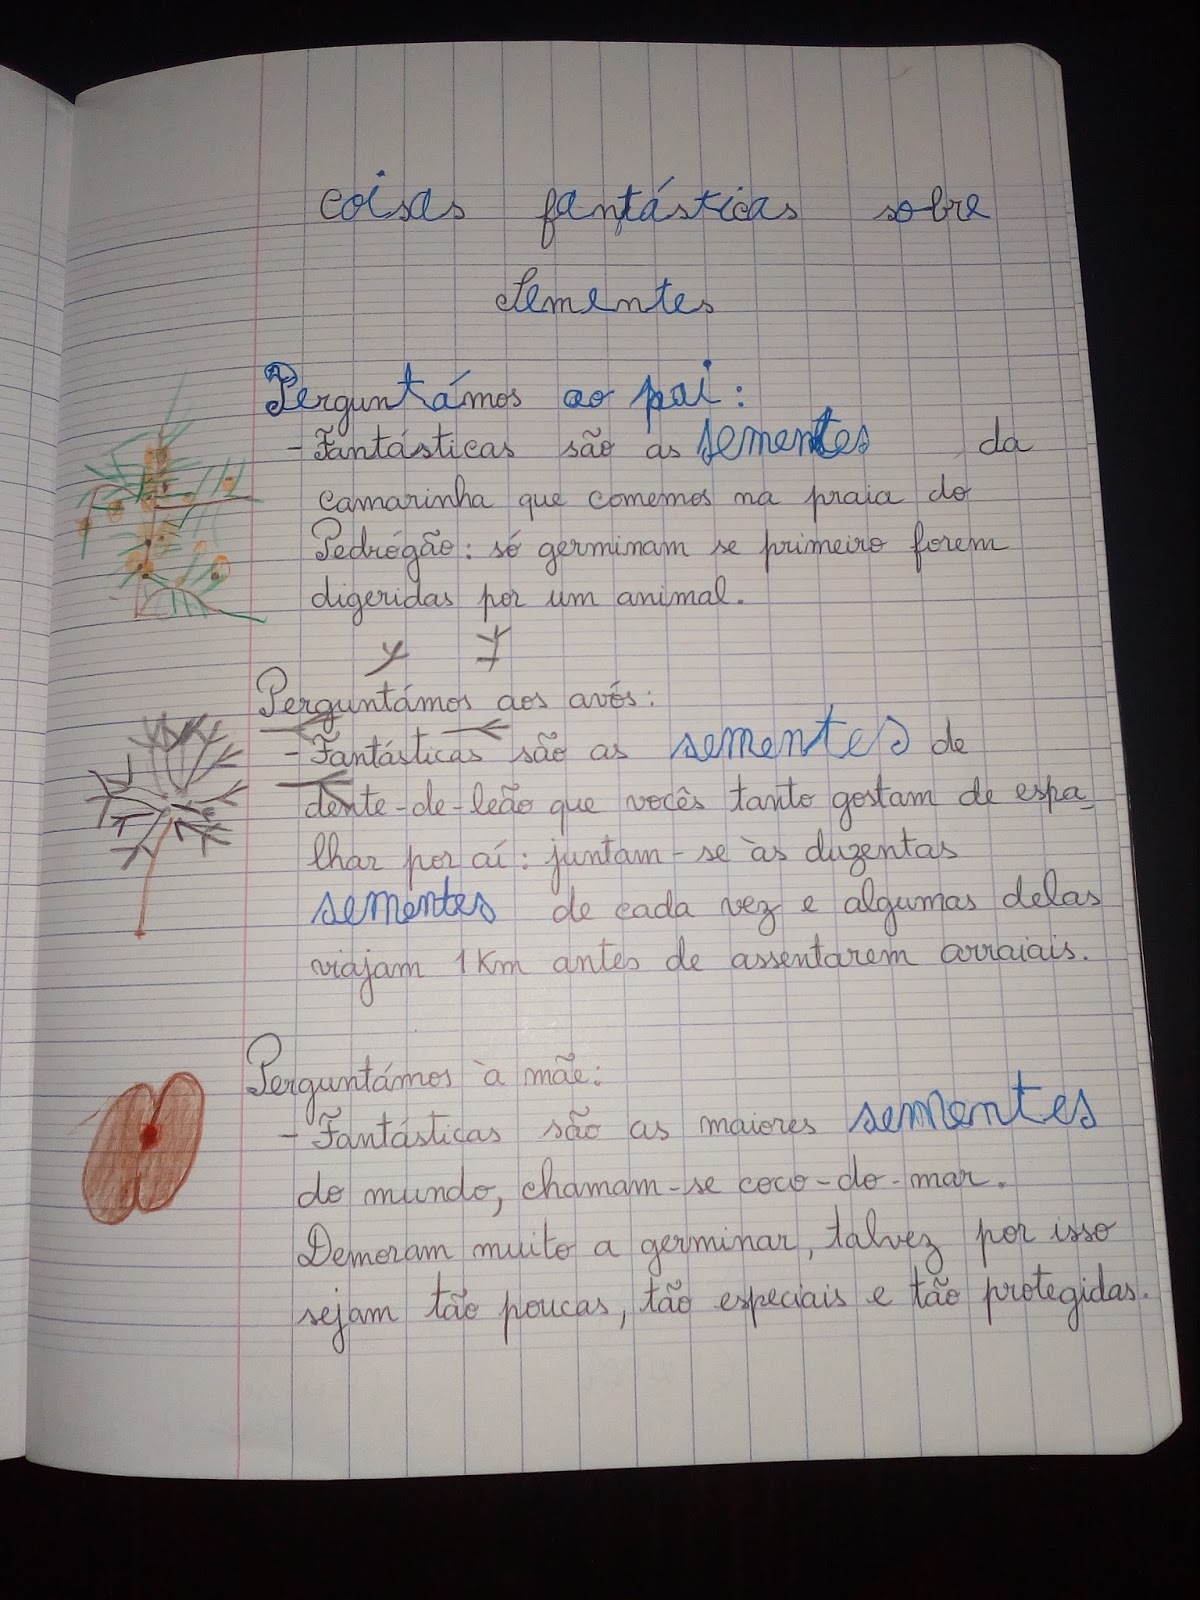 coisas fantásticas sobre
Sementes
Perguntámos ao pai:
- Fantásticas são as sementes da
camarinha que comemos na praia do
Pedrógão: só germinam se primeiro forem
digeridas por um animal.
Perguntámos aos avós:
- Fantásticas são as sementes de
dente-de-leão que vocês tanto gostam de espa-
lhar por aí: juntam-se às duzentas
sementes de cada vez e algumas delas
viajam 1 Km antes de assentarem arraiais.
Perguntámos à mãe:
- Fantásticas são as maiores sementes
do mundo, chamam-se coco-do-mar.
Demoram muito a germinar, talvez por isso
sejam tão poucas, tão especiais e tão protegidas.